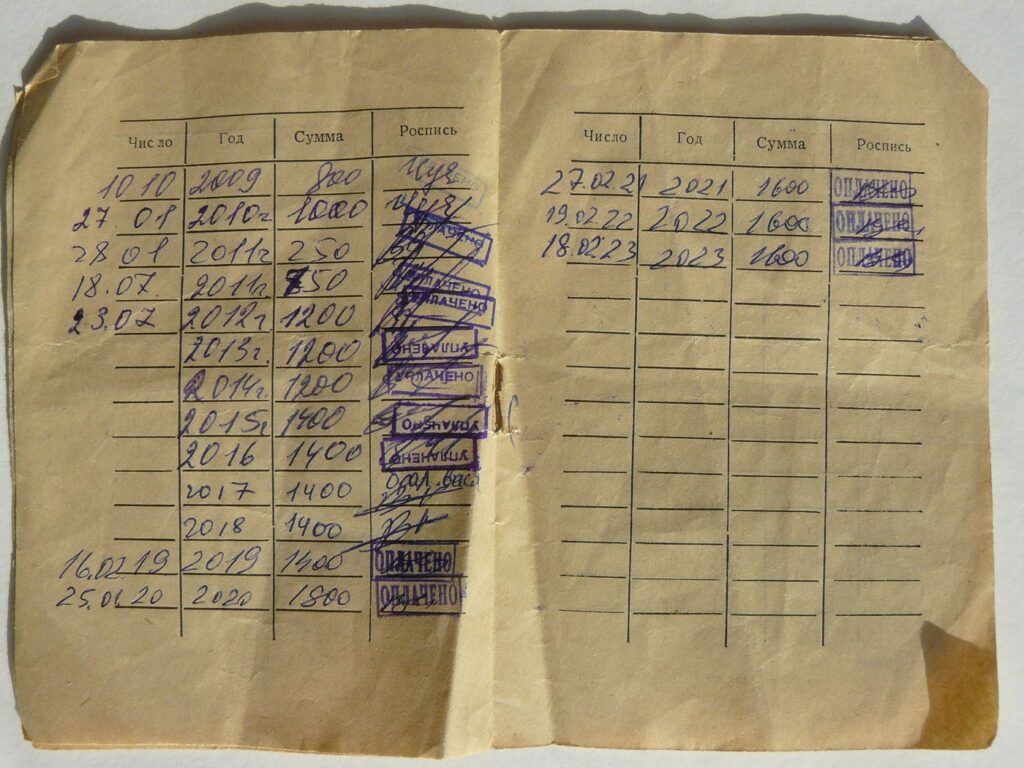 Число Год Сумма Роспись
10 10 2009 800
27 01 2010г 1000 УПЛАЧЕНО
28 01 2011г 250
18.07. 2011г. 750 УПЛАЧЕНО
23.07 2012г 1200 УПЛАЧЕНО
2013г. 1200 УПЛАЧЕНО
2014г. 1200 УПЛАЧЕНО
2015г 1400 УПЛАЧЕНО
2016 1400 УПЛАЧЕНО
2017 1400
2018 1400
16.02.19 2019 1400 ОПЛАЧЕНО
25.01.20 2020 1800 ОПЛАЧЕНО
Число Год Сумма Роспись
27.02.21 2021 1600 ОПЛАЧЕНО
19.02.22 2022 1600 ОПЛАЧЕНО
18.02.23 2023 1600 ОПЛАЧЕНО